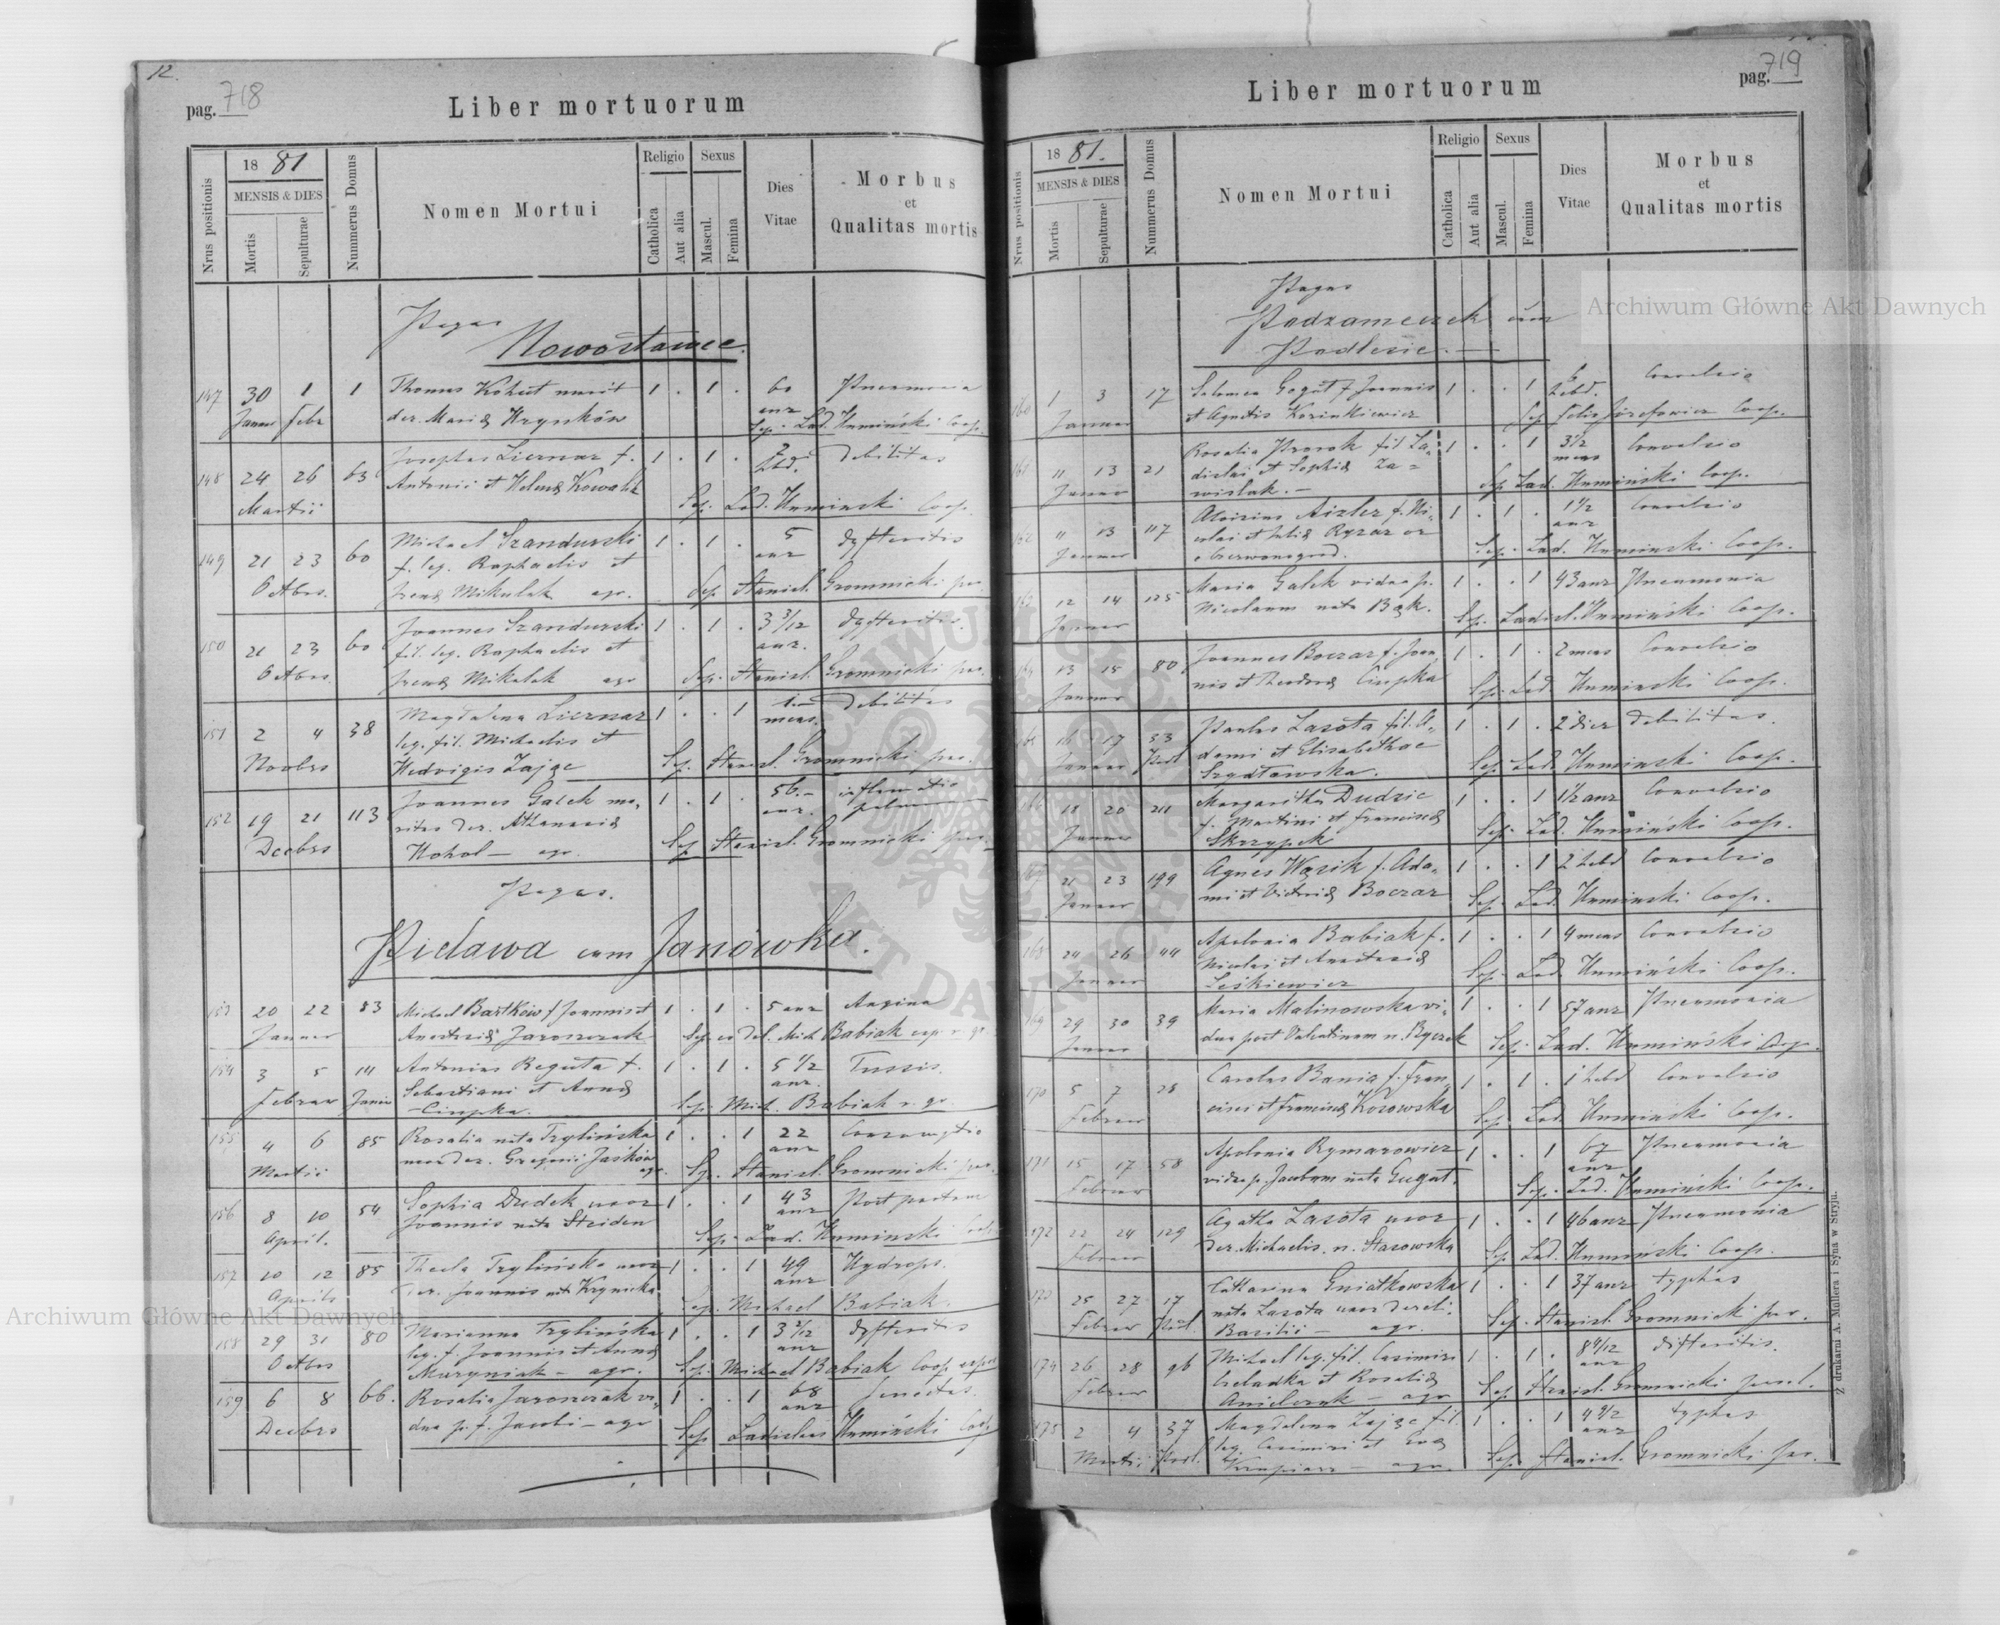 12.
pag. 718
Liber mortuorum
Nrus positionis
1881
MENSIS & DIES
Mortis
Sepulturae
Nummerus Domus
Nomen Mortui
Religio
Catholica
Aut alia
Sexus
Mascul.
Femina
Dies
Vitae
Morbus
et
Qualitas mortis
Pagus
Nowostawce
147 30 1 1 Thomas Kohut marit 1 . 1 . 60 Pneumonia
Januar Febr der. Mariæ Hrynków anr
Sep. Lad. Humiński Coop.
148 24 26 63 Josephus Liernar f. 1 . 1 . 2 debilitas
Antonii et Helenæ Kowalik hbd.
Martii Sep. Lad. Huminski Coop.
149 21 23 60 Michael Szandurski 1 . 1 . 5 dyfteritis
f. leg. Raphaelis et anr
Octbrs. Irenæ Mikulak agr. Sep. Stanisl. Gromnicki par.
150 21 23 60 Joannes Szandurski 1 . 1 . 3 3/12 dyfteritis.
fil. leg. Raphaelis et anr.
Octbrs. Irenæ Mikulak agr Sep. Stanisl. Gromnicki par.
151 2 4 38 Magdalena Liernar 1 . . 1 1 debilitas
leg. fil. Michaelis et mens.
Novbrs Hedvigis Zając Sep. Stanisl. Gromnicki par.
152 19 21 113 Joannes Galek ma- 1 . 1 . 56.-
ritus der. Athanasiæ anr.
Decbrs Hohol — agr. Sep. Stanisl. Gromnicki par.
Pagus.
Pielawa cum Janówka.
153 20 22 83 Michael Bartków f Joannis et 1 . 1 . 5 anr Angina
Januar Anastasiæ Jaronczak Sep. Mich Babiak
154 3 5 14 Antonius Reguta f. 1 . 1 . 5 1/2 Tussis.
Sebastiani et Annæ anr.
Februar Ciupka. Sep. Mich. Babiak r. gr.
155 4 6 85 Rosalia nata Trylińska 1 . . 1 22 Consumptio
uxor der. Gregorii Jasków anr
Martii agr. Sep. Stanisl. Gromnicki par.
156 8 10 54 Sophia Dudek uxor 1 . . 1 43 Post partum
Joannis nata Striden anr
April. Sep. Lad. Huminski
157 10 12 85 Thecla Trylińska uxor 1 . . 1 49 Hydrops.
der. Joannis nat Krynicka anr
Aprilis Sep. Michael Babiak.
158 29 31 80 Marianna Trylińska 1 . . 1 3 2/12 dyfteritis
leg. f. Joannis et Annæ anr
Octbrs Muryniak — agr. Sep. Michael Babiak Coop expos
159 6 8 66. Rosalia Jaronczak vi- 1 . . 1 68 senectus.
dua p. f. Jacobi — agr anr
Decbrs Sep Ladislaus Humiński Coop
pag. 719
Liber mortuorum
Nrus positionis
1881.
MENSIS & DIES
Mortis
Sepulturae
Nummerus Domus
Nomen Mortui
Religio
Catholica
Aut alia
Sexus
Mascul.
Femina
Dies
Vitae
Morbus
et
Qualitas mortis
Pagus
Podzameczek cum
Podlesie. —
160 1 3 17 Salomea Gogut f Joannis 1 . . 1 6 Convulsio
et Agnetis Kozinkiewicz hebd.
Januar Sep Felix Józefowicz Coop.
161 11 13 21 Rosalia Prorok fil La- 1 . . 1 3 1/2 Convulsio
dislai et Sophiæ Za- mens
Januar wislak. — Sep Lad. Huminski Coop.
162 11 13 117 Aloisius Aizler f. Ni- 1 . 1 . 1 1/2 Convulsio
colai et Juliæ Ryzar ex anr
Januar Czerwonogrod. Sep. Lad. Huminski Coop.
163 12 14 125 Maria Galek vidua p. 1 . . 1 43 anr Pneumonia
Nicolaum nata Bąk.
Januar Sep. Ladisl. Humiński Coop.
164 13 15 80 Joannes Boczar f. Joan 1 . 1 . 2 mens Convulsio
nis et Theodoræ Ciupka
Januar Sep. Lad. Huminski Coop.
165 16 17 33 Paulus Lasota fil. A- 1 . 1 . 2 dier debilitas.
Januar Podl dami et Elisabethae
Szydłowska. Sep. Lad. Huminski Coop.
166 18 20 211 Margaritha Dudzic 1 . . 1 1 1/2 anr Convulsio
f. Martini et Franciscæ
Januar Skrzypek Sep. Lad. Humiński Coop.
167 21 23 199 Agnes Wąsik f. Ada- 1 . . 1 2 hebd Convulsio
mi et Victoriæ Boczar
Januar Sep. Lad. Huminski Coop.
168 24 26 44 Apolonia Babiak f. 1 . . 1 4 mens Convulsio
Nicolai et Anastasiæ
Januar Leśkiewicz Sep. Lad. Humiński Coop.
169 29 30 39 Maria Malinowska vi- 1 . . 1 57 anr Pneumonia
dua post Valentinum n. Byczek
Januar Sep. Lad. Humiński
170 5 7 28 Carolus Bania f. Fran- 1 . 1 . 1 hebd Convulsio
cisci et Franciscæ Kosowska
Februar Sep. Lad. Humiński Coop.
171 15 17 58 Apolonia Rymarowicz 1 . . 1 67 Pneumonia
vidua p. Jacobum nata Gugut. anr
Februar Sep. Lad. Humiński Coop.
172 22 24 129 Agatha Lasota uxor 1 . . 1 46 anr Pneumonia
der. Michaelis. n. Stasowska
Februar Sep. Lad. Humiński Coop.
173 25 27 17 Catharina Gniatkowska 1 . . 1 37 anr typhus
nata Lasota uxor derel.
Februar Podl. Basilii — agr. Sep. Stanisl. Gromnicki par.
174 26 28 96 Michael leg. fil. Casimiri 1 . 1 . 8 4/12 difteritis.
Czeladka et Rosaliæ anr
Februar Anielczuk — agr Sep. Stanisl. Gromnicki
175 2 4 37 Magdalena Zając fil. 1 . . 1 4 9/12 typhus
leg. Casimiri et Evæ anr
Martii Podl. Krupiarz — agr. Sep. Stanisl. Gromnicki par.
Z drukarni A. Müllera i Syna w Stryju.
Archiwum Główne Akt Dawnych
Archiwum Główne Akt Dawnych
ARCHIWUM GŁÓWNE AKT DAWNYCH